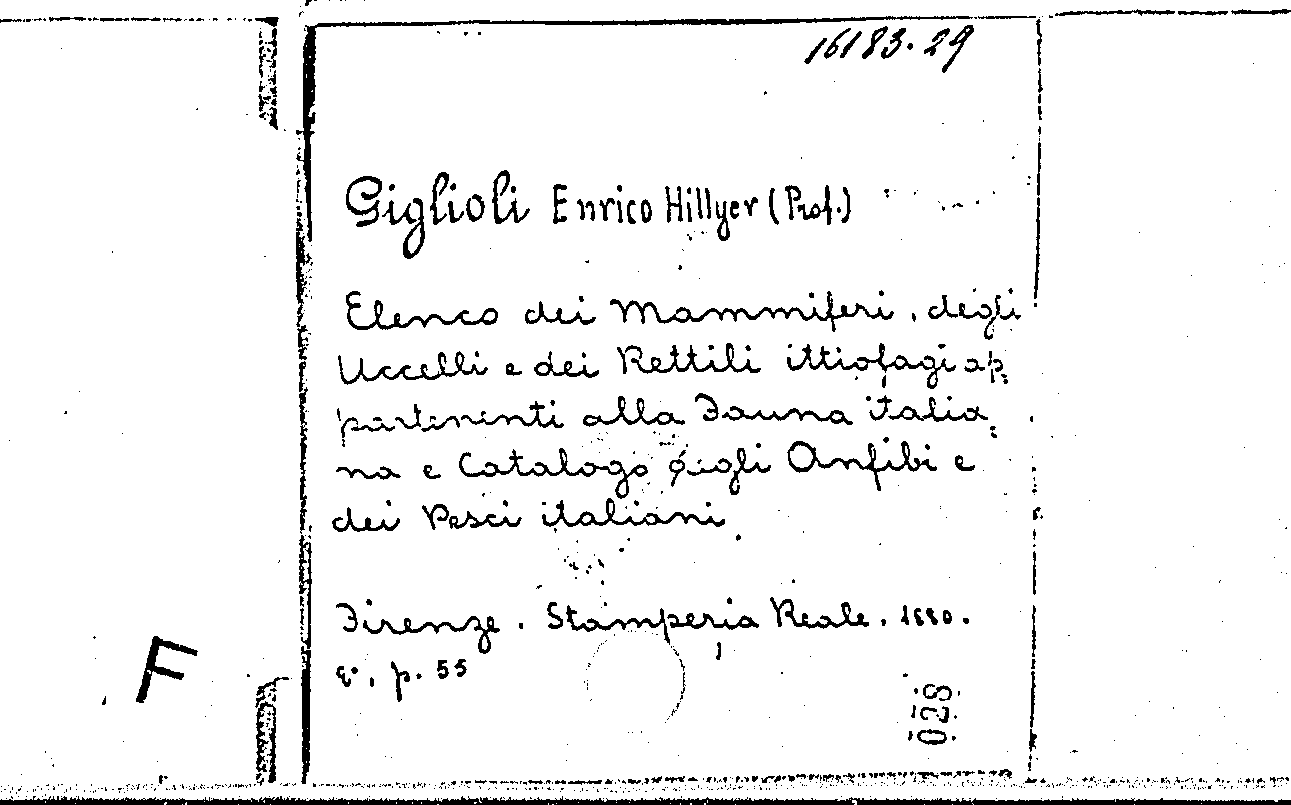 16183.29
Giglioli Enrico Hillyer (Prof.)
Elenco dei Mammiferi, degli
Uccelli e dei Rettili ittiofagi ap-
partenenti alla Fauna italia-
na e Catalogo degli Anfibi e
dei Pesci italiani.
Firenze. Stamperia Reale. 1880.
8°, p. 55
F
028